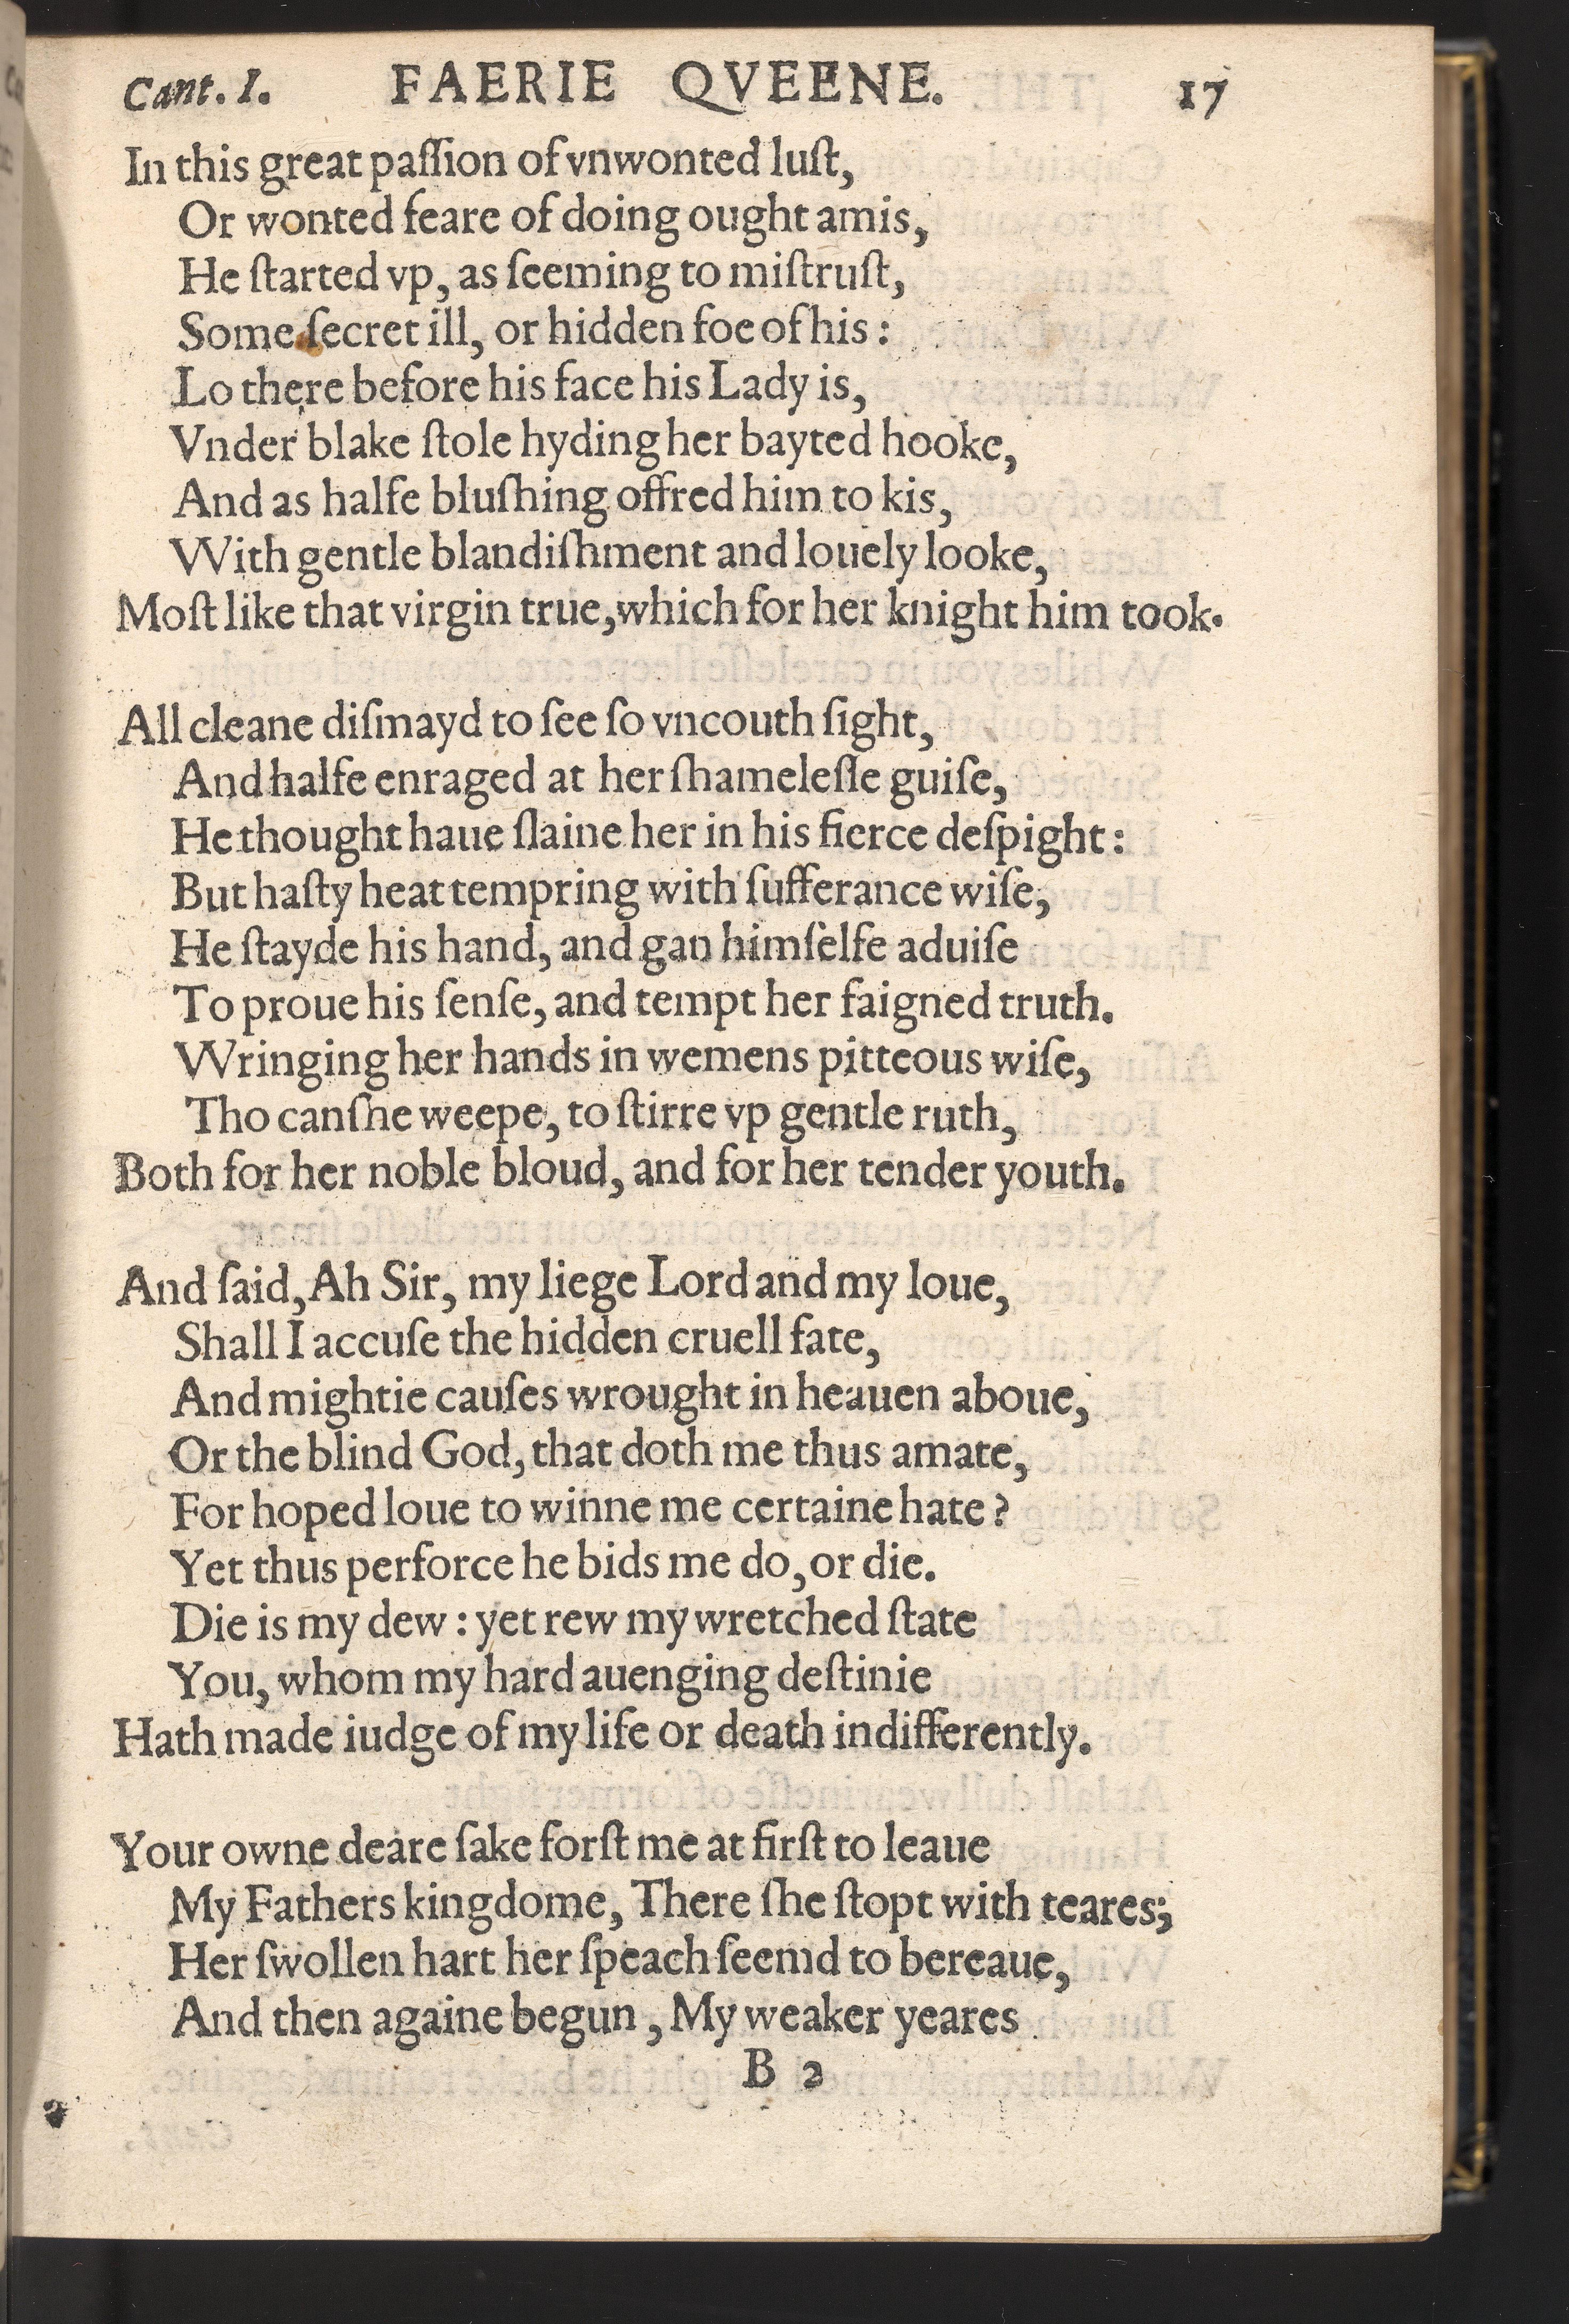 Cant. I. FAERIE QVEENE. 17
In this great paſſion of vnwonted luſt,
Or wonted feare of doing ought amis,
He ſtarted vp, as ſeeming to miſtruſt,
Some ſecret ill, or hidden foe of his:
Lo there before his face his Lady is,
Vnder blake ſtole hyding her bayted hooke,
And as halfe bluſhing offred him to kis,
With gentle blandiſhment and louely looke,
Moſt like that virgin true, which for her knight him took.
All cleane diſmayd to ſee ſo vncouth ſight,
And halfe enraged at her ſhameleſſe guiſe,
He thought haue ſlaine her in his fierce deſpight:
But haſty heat tempring with ſufferance wiſe,
He ſtayde his hand, and gan himſelfe aduiſe
To proue his ſenſe, and tempt her faigned truth.
Wringing her hands in wemens pitteous wiſe,
Tho can ſhe weepe, to ſtirre vp gentle ruth,
Both for her noble bloud, and for her tender youth.
And ſaid, Ah Sir, my liege Lord and my loue,
Shall I accuſe the hidden cruell fate,
And mightie cauſes wrought in heauen aboue,
Or the blind God, that doth me thus amate,
For hoped loue to winne me certaine hate?
Yet thus perforce he bids me do, or die.
Die is my dew: yet rew my wretched ſtate
You, whom my hard auenging deſtinie
Hath made iudge of my life or death indifferently.
Your owne deare ſake forſt me at firſt to leaue
My Fathers kingdome, There ſhe ſtopt with teares;
Her ſwollen hart her ſpeach ſeemd to bereaue,
And then againe begun, My weaker yeares
B 2